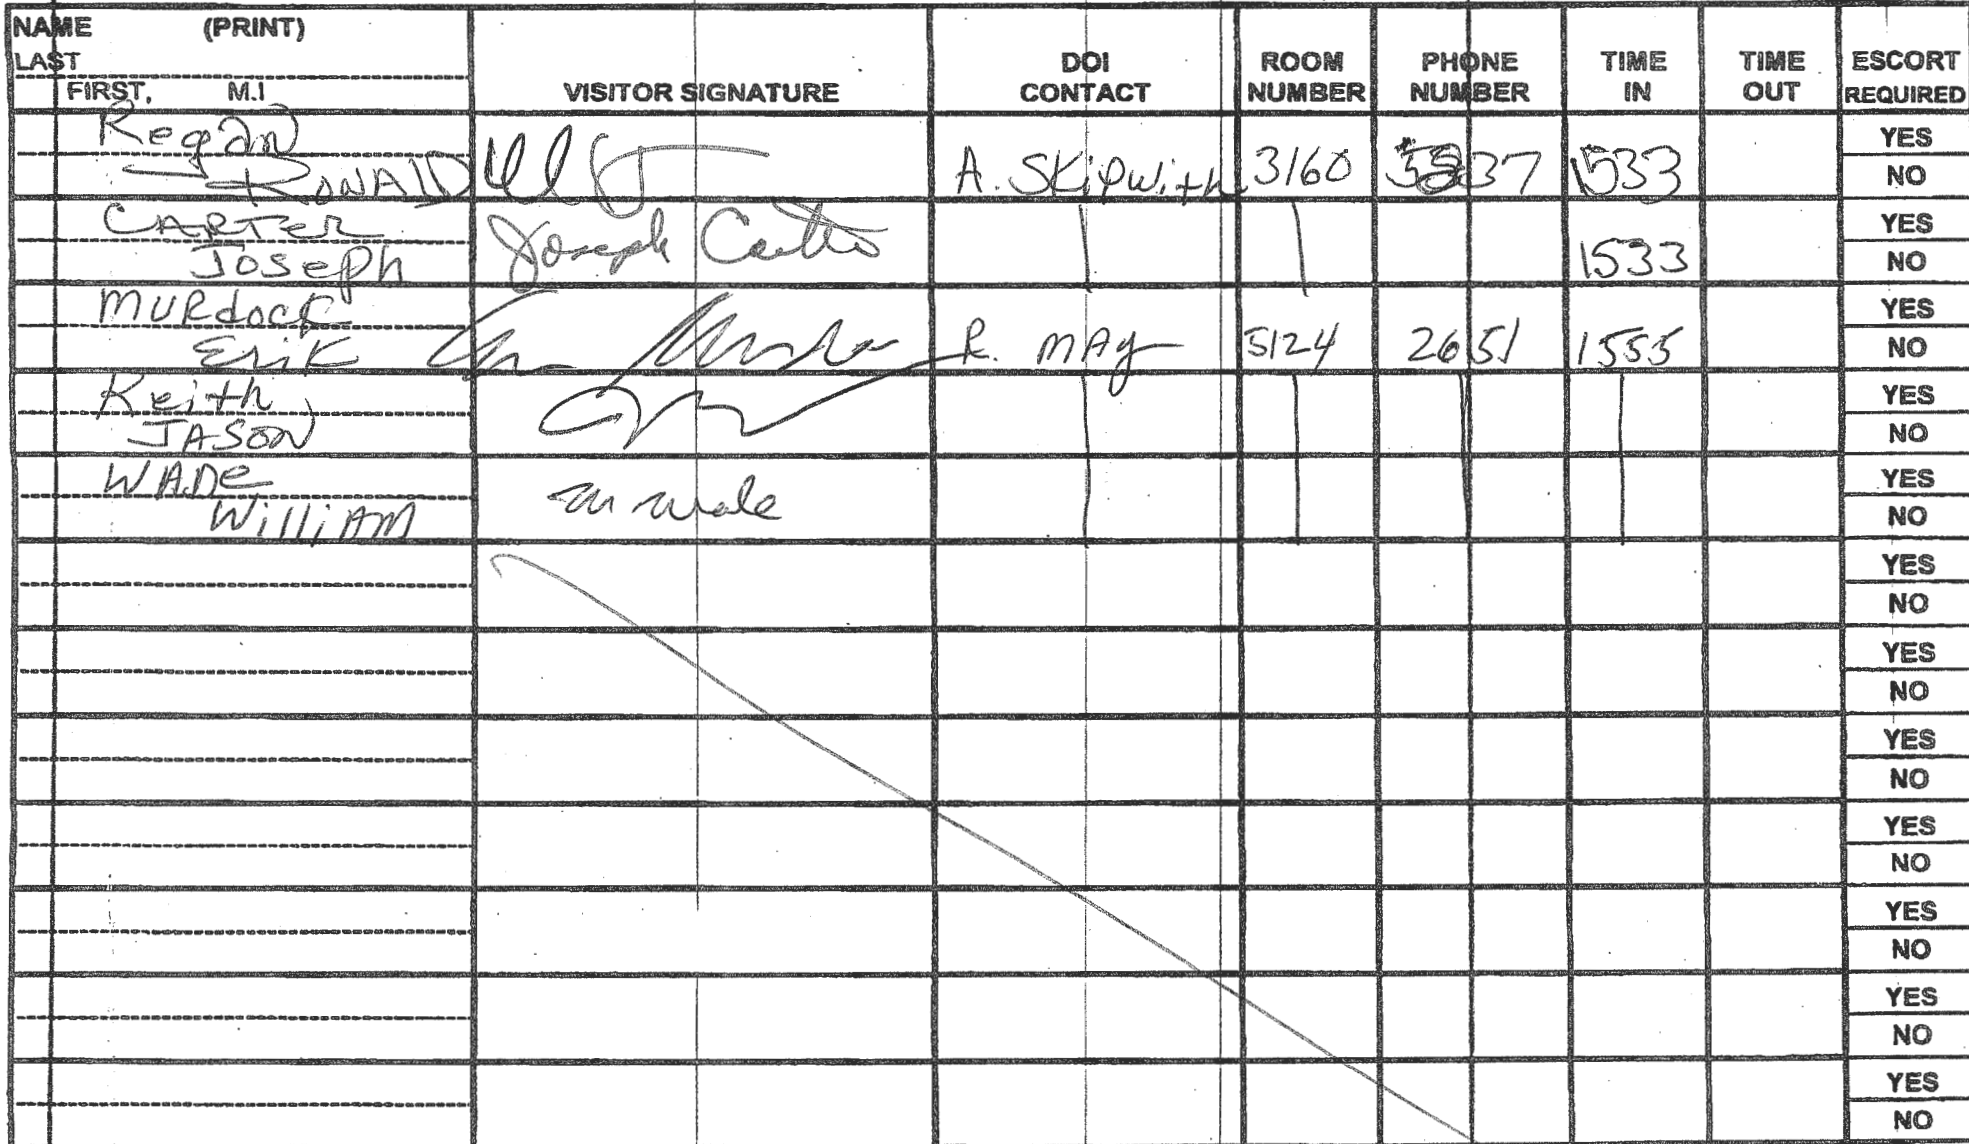 NAME (PRINT)
LAST
FIRST, M.I
VISITOR SIGNATURE
DOI
CONTACT
ROOM
NUMBER
PHONE
NUMBER
TIME
IN
TIME
OUT
ESCORT
REQUIRED
Regan
RONALD
A. Skipwith 3160 1533
YES
NO
CARTER
Joseph Joseph Carter 1533
YES
NO
MURdock
Erik R. MAy 5124 2651 1555
YES
NO
Keith
JASON
YES
NO
WADe
WilliAM W Wade
YES
NO
YES
NO
YES
NO
YES
NO
YES
NO
YES
NO
YES
NO
YES
NO